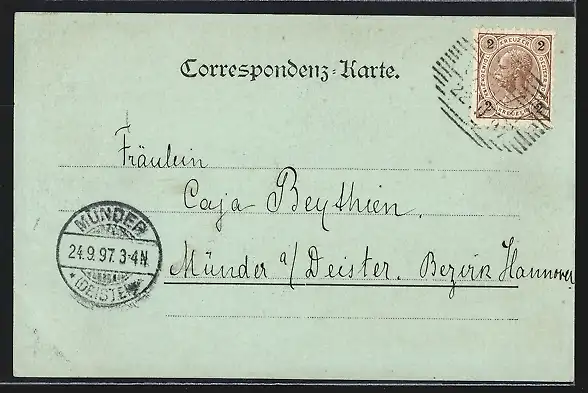 Correspondenz-Karte.
2 KREUZER 2
2 KREUZER 2
Fräulein
Caja Beythien.
Münder a/ Deister. Bezirk Hannover
MÜNDER
24.9.97. 3-4N
* (DEISTER) *